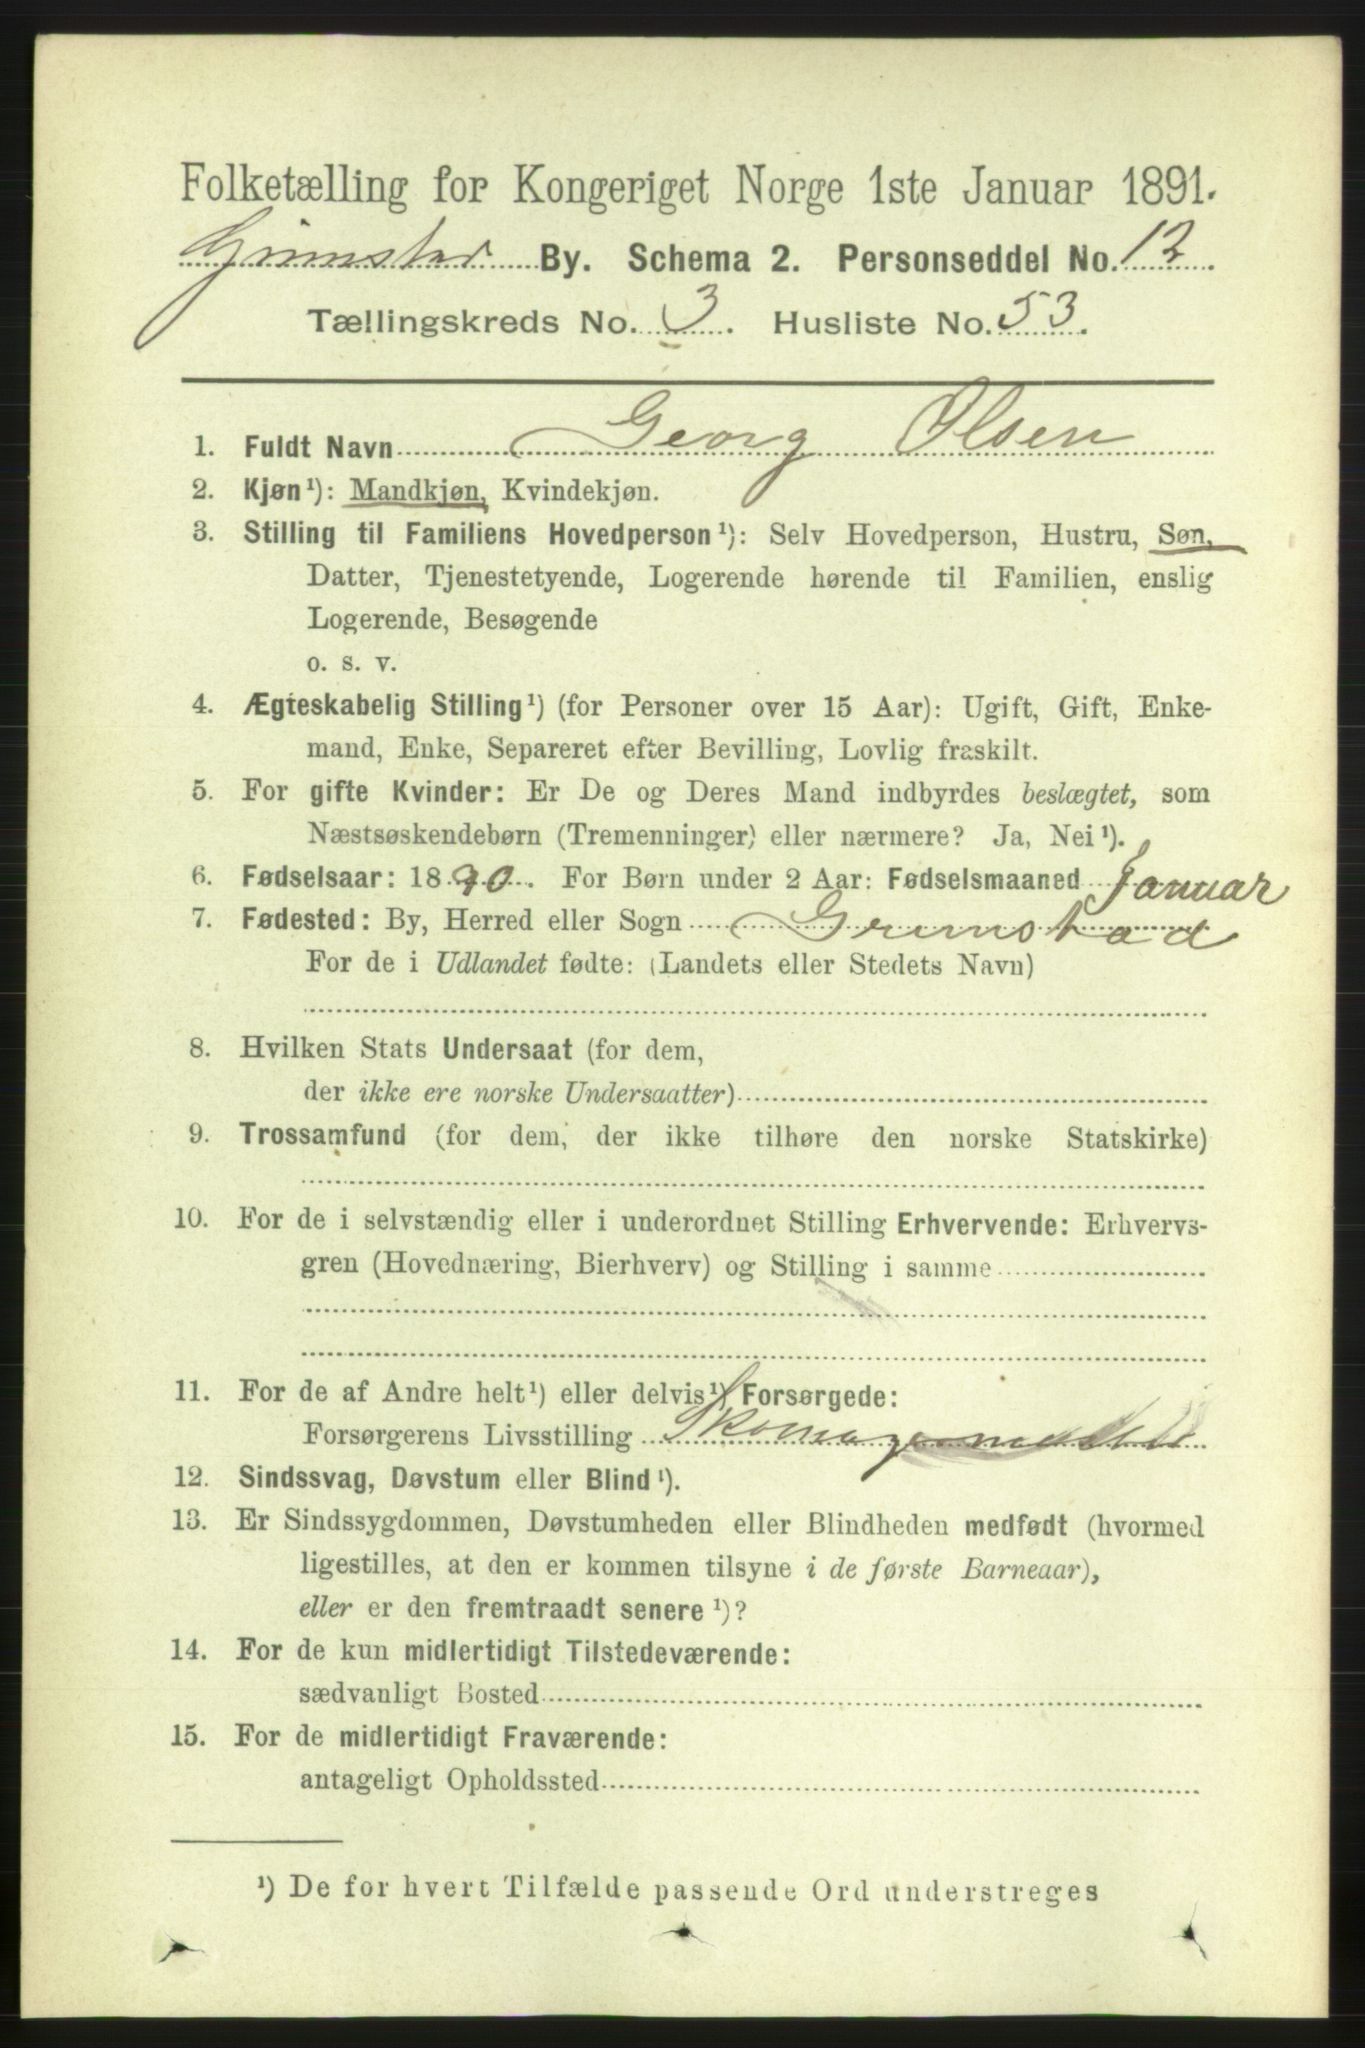 Folketælling for Kongeriget Norge 1ste Januar 1891.
Grimstad By. Schema 2. Personseddel No. 12
Tællingskreds No. 3. Husliste No. 53.
1. Fuldt Navn Georg Olsen
2. Kjøn¹): Mandkjøn, Kvindekjøn.
3. Stilling til Familiens Hovedperson¹): Selv Hovedperson, Hustru, Søn,
Datter, Tjenestetyende, Logerende hørende til Familien, enslig
Logerende, Besøgende
o. s. v.
4. Ægteskabelig Stilling¹) (for Personer over 15 Aar): Ugift, Gift, Enke-
mand, Enke, Separeret efter Bevilling, Lovlig fraskilt.
5. For gifte Kvinder: Er De og Deres Mand indbyrdes beslægtet, som
Næstsøskendebørn (Tremenninger) eller nærmere? Ja, Nei¹).
6. Fødselsaar: 1890. For Børn under 2 Aar: Fødselsmaaned Januar
7. Fødested: By, Herred eller Sogn Grimstad
For de i Udlandet fødte: (Landets eller Stedets Navn)
8. Hvilken Stats Undersaat (for dem,
der ikke ere norske Undersaatter)
9. Trossamfund (for dem, der ikke tilhøre den norske Statskirke)
10. For de i selvstændig eller i underordnet Stilling Erhvervende: Erhvervs-
gren (Hovednæring, Bierhverv) og Stilling i samme
11. For de af Andre helt¹) eller delvis¹) Forsørgede:
Forsørgerens Livsstilling Skomager
12. Sindssvag, Døvstum eller Blind¹).
13. Er Sindssygdommen, Døvstumheden eller Blindheden medfødt (hvormed
ligestilles, at den er kommen tilsyne i de første Barneaar),
eller er den fremtraadt senere¹)?
14. For de kun midlertidigt Tilstedeværende:
sædvanligt Bosted
15. For de midlertidigt Fraværende:
antageligt Opholdssted
¹) De for hvert Tilfælde passende Ord understreges